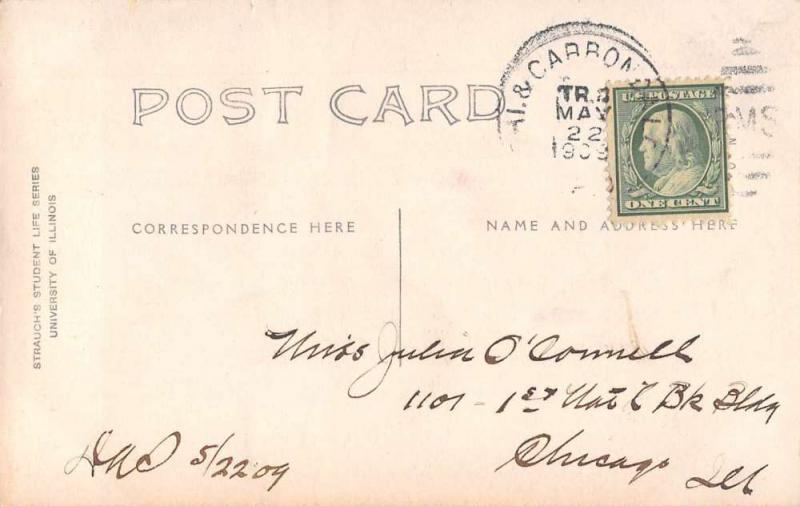 POST CARD
HI. & CARBON
TR. 2
MAY
22
1909
U.S. POSTAGE
ONE CENT
RMS
STRAUCH'S STUDENT LIFE SERIES
UNIVERSITY OF ILLINOIS
CORRESPONDENCE HERE
NAME AND ADDRESS HERE
Miss Julia O'Connell
1101 - 1st Nat'l Bk Bldg
Chicago Ill
5/22 09